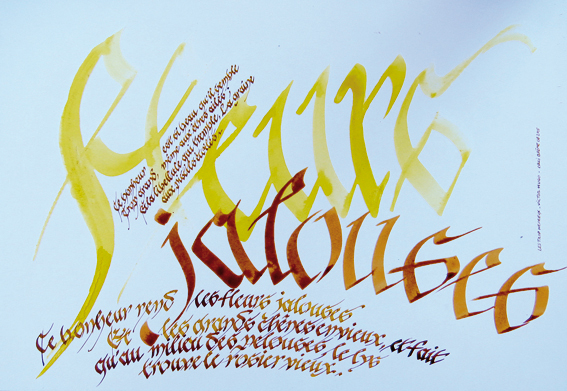 Fleurs
jalouses
Le bonheur est si beau qu'il semble
trop grand, même aux êtres ailés ;
et la libellule qui tremble, la graine
aux pistils étoilés
Ce bonheur rend les fleurs jalouses
Et les grands chênes envieux, et fait
qu'au milieu des pelouses, le lys
trouve le rosier vieux.